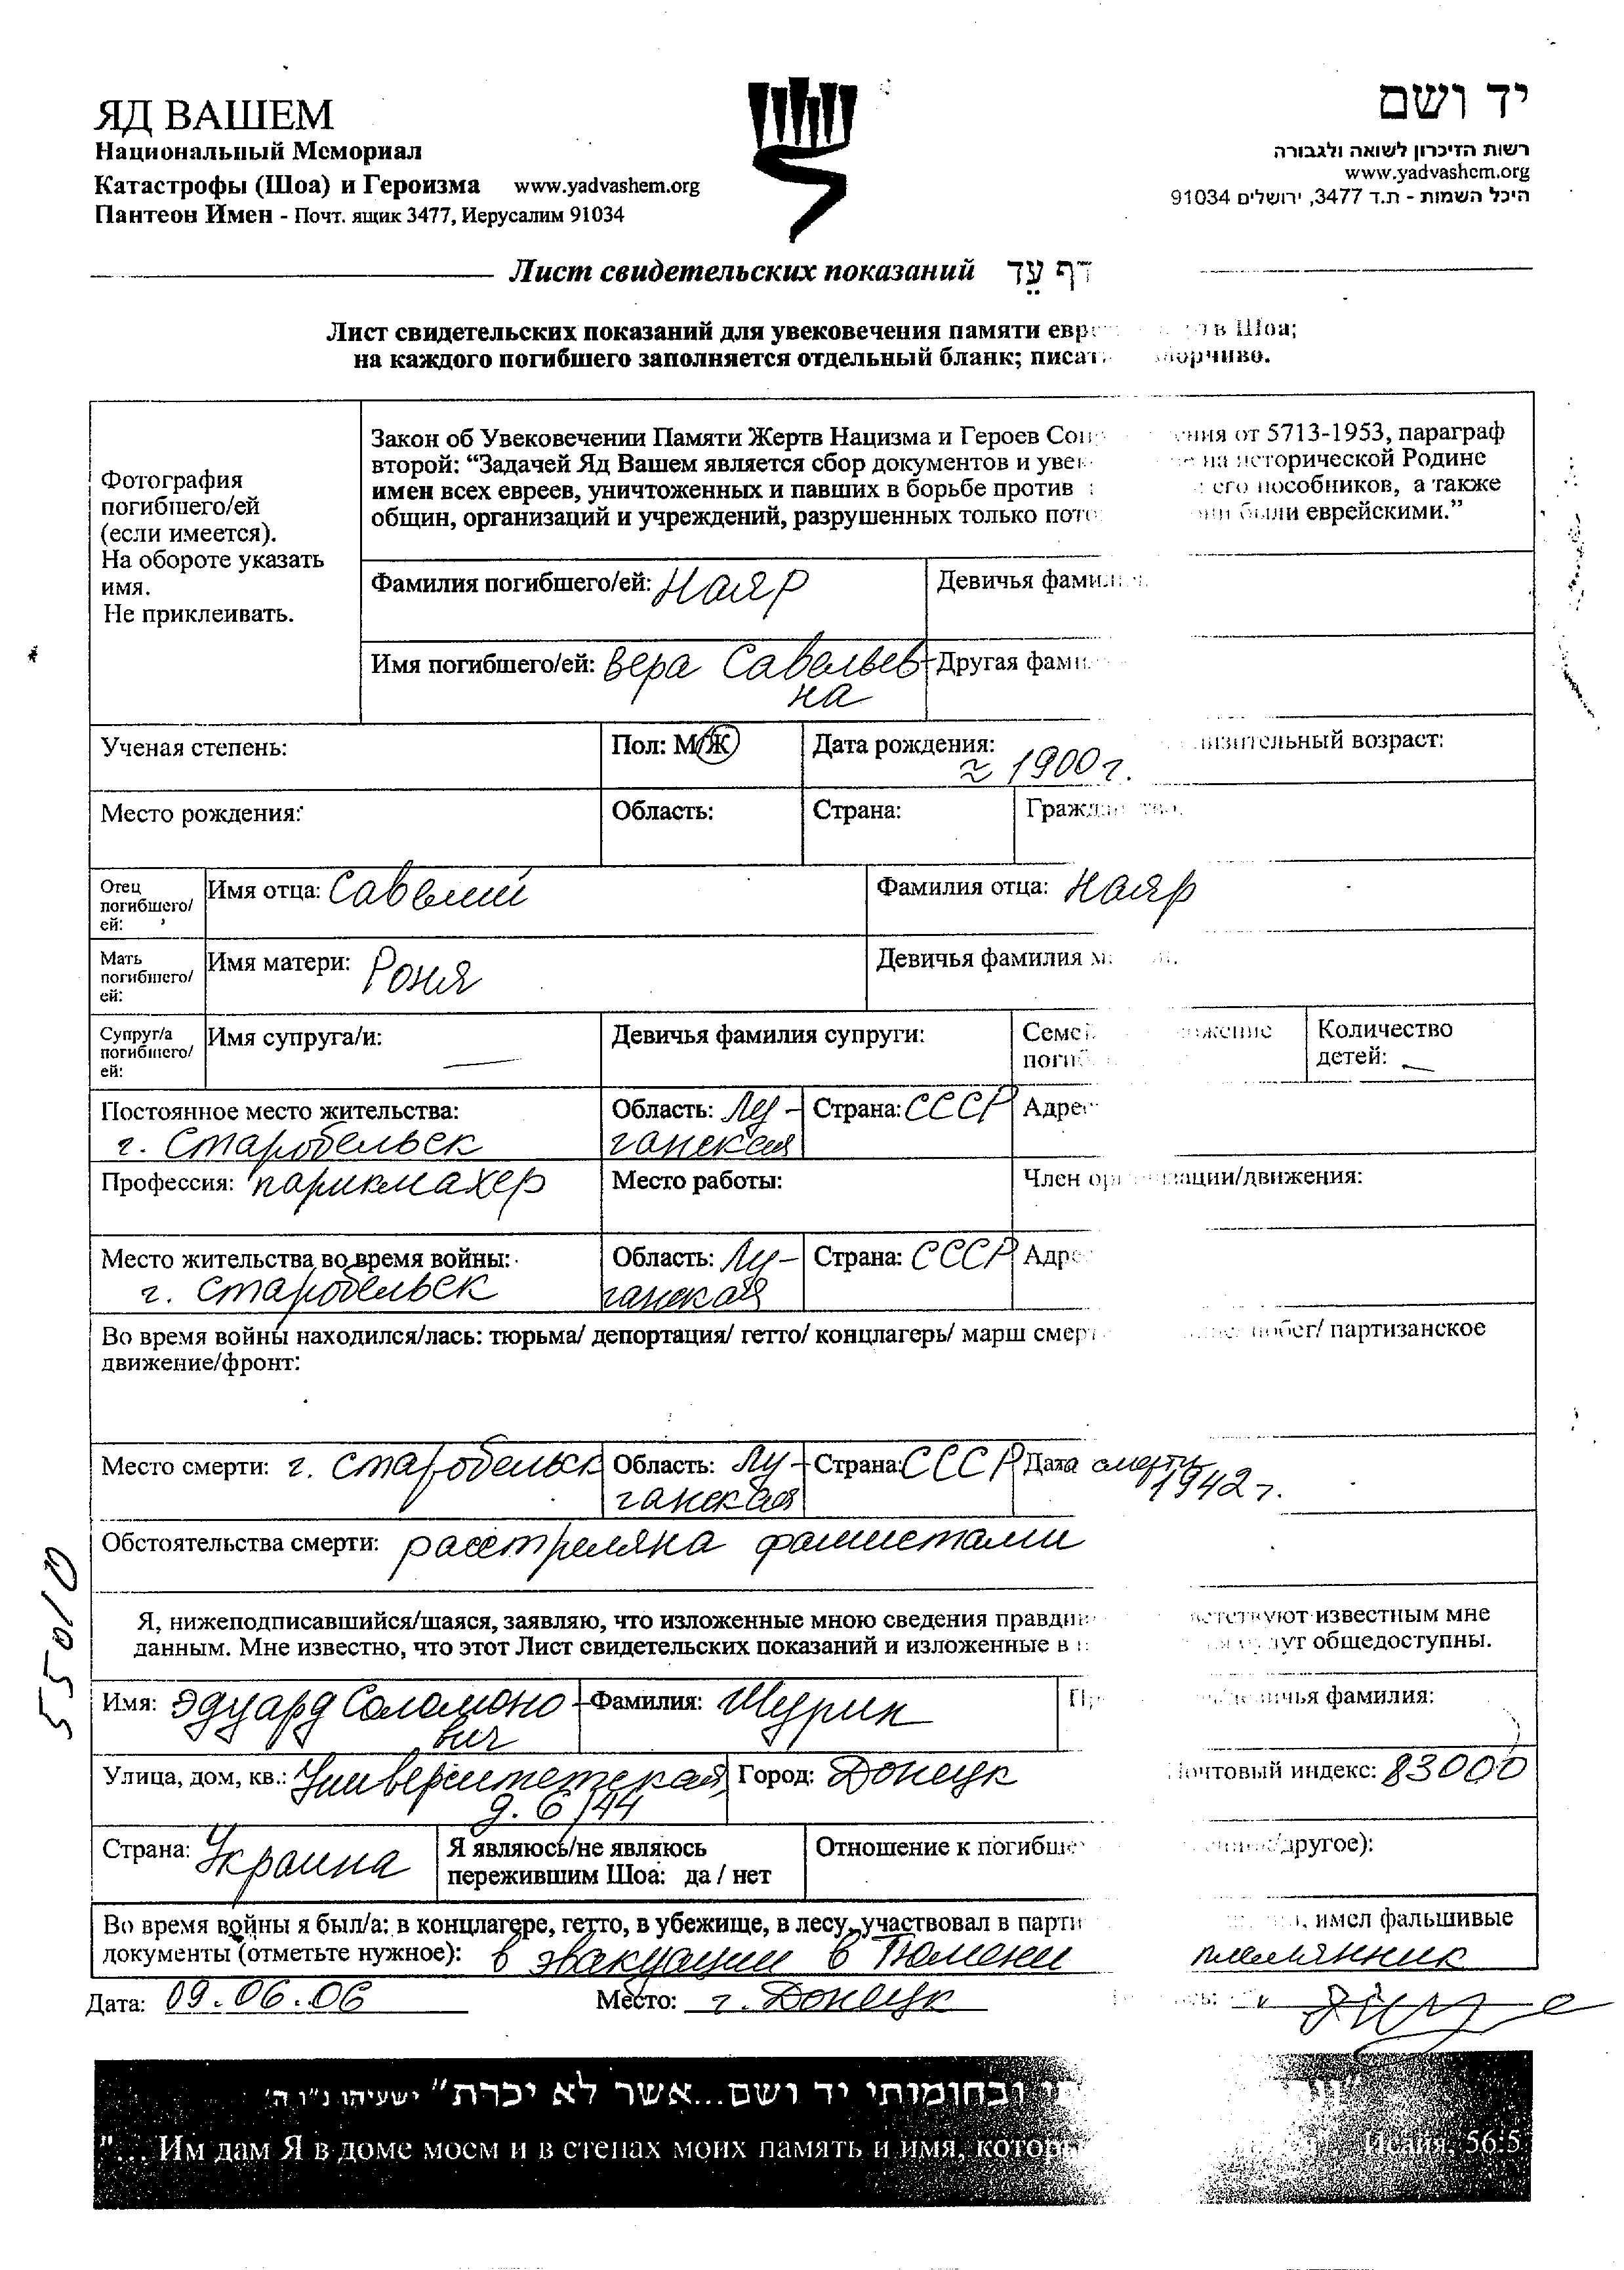 ЯД ВАШЕМ
Национальный Мемориал
Катастрофы (Шоа) и Героизма www.yadvashem.org
Пантеон Имен - Почт. ящик 3477, Иерусалим 91034
יד ושם
רשות הזיכרון לשואה ולגבורה
www.yadvashem.org
היכל השמות - ת.ד 3477, ירושלים 91034
Лист свидетельских показаний דף עֵד
Лист свидетельских показаний для увековечения памяти евр в Шоа;
на каждого погибшего заполняется отдельный бланк; писат орчиво.
Фотография
погибшего/ей
(если имеется).
На обороте указать
имя.
Не приклеивать.
Закон об Увековечении Памяти Жертв Нацизма и Героев Соп ения от 5713-1953, параграф
второй: “Задачей Яд Вашем является сбор документов и увек е на исторической Родине
имен всех евреев, уничтоженных и павших в борьбе против его пособников, а также
общин, организаций и учреждений, разрушенных только пот они были еврейскими.”
Фамилия погибшего/ей: Наяр Девичья фамил
Имя погибшего/ей: Вера Савельев- Другая фами
на
Ученая степень: Пол: М/Ж Дата рождения: изительный возраст:
≈ 1900 г.
Место рождения: Область: Страна: Гражд тво
Отец погибшего/ей: Имя отца: Савелий Фамилия отца: Наяр
Мать погибшего/ей: Имя матери: Роня Девичья фамилия м
Супруг/а погибшего/ей: Имя супруга/и: — Девичья фамилия супруги: Семей ожение Количество
поги детей: —
Постоянное место жительства: Область: Лу- Страна: СССР Адрес
г. Старобельск ганская
Профессия: парикмахер Место работы: Член орг изации/движения:
Место жительства во время войны: Область: Лу- Страна: СССР Адре
г. Старобельск ганская
Во время войны находился/лась: тюрьма/ депортация/ гетто/ концлагерь/ марш смерт побег/ партизанское
движение/фронт:
Место смерти: г. Старобельск Область: Лу- Страна: СССР Дата смерти
ганская 1942 г.
Обстоятельства смерти: расстреляна фашистами
Я, нижеподписавшийся/шаяся, заявляю, что изложенные мною сведения правди ветствуют известным мне
данным. Мне известно, что этот Лист свидетельских показаний и изложенные в н будут общедоступны.
Имя: Эдуард Соломоно- Фамилия: Щурик Пр Девичья фамилия:
вич
Улица, дом, кв.: Университетская Город: Донецк Почтовый индекс: 83000
д. 6/44
Страна: Украина Я являюсь/не являюсь Отношение к погибше другое):
пережившим Шоа: да / нет
Во время войны я был/а: в концлагере, гетто, в убежище, в лесу, участвовал в парти , имел фальшивые
документы (отметьте нужное): в эвакуации в Тюмени племянник
Дата: 09.06.06 Место: г. Донецк
5501D
ובחומותי יד ושם...אשר לא יכרת" ישעיהו נ"ו ה'
"... Им дам Я в доме моем и в стенах моих память и имя, которы Исайя, 56:5